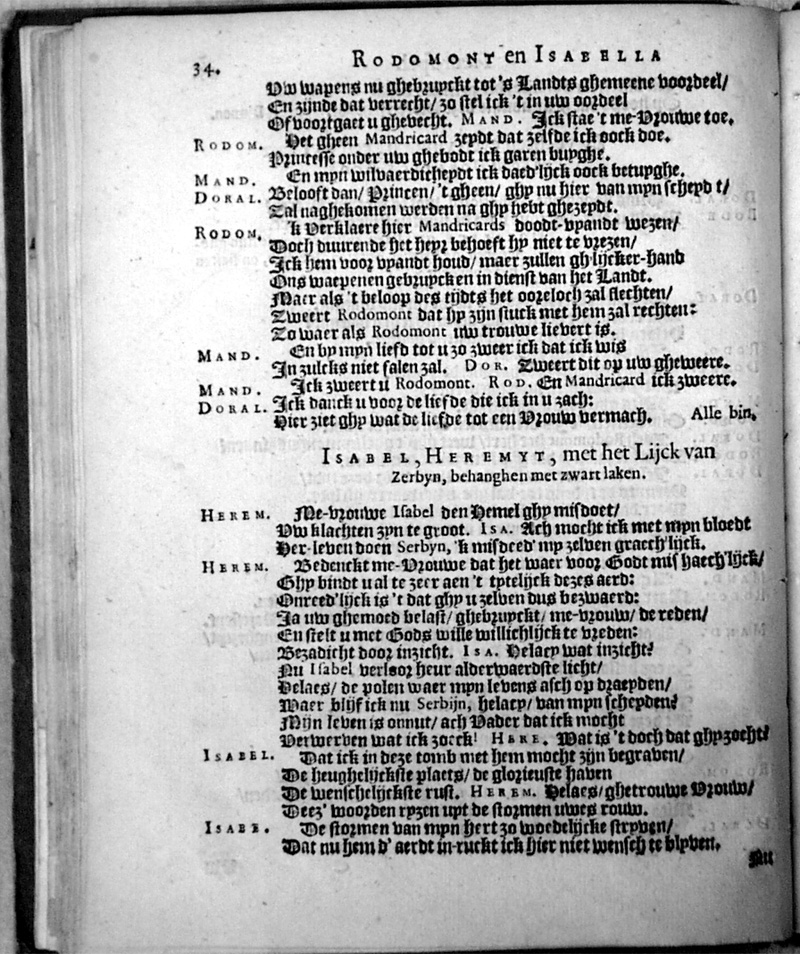 34.
RODOMONT en ISABELLA
Uw wapens nu ghebruyckt tot 's Landts ghemeene voordeel/
En zijnde dat verrecht/ zo stel ick 't in uw oordeel
Of voortgaet u ghevecht. MAND. Ick stae 't me-Vrouwe toe.
RODOM. Het gheen Mandricard zeydt dat zelfde ick oock doe.
Princesse onder uw ghebodt ick garen buyghe.
MAND. En myn wilvaerdicheydt ick daed'lijck oock betuyghe.
DORAL. Belooft dan/ Princen/ 't gheen/ ghy nu hier van myn scheydt/
Zal naghekomen werden na ghy hebt ghezeydt.
RODOM. 'k Verklaere hier Mandricards doodt-vyandt wezen/
Doch duurende het heyr behoeft hy niet te vrezen/
Ick hem voor vyandt houd/ maer zullen gh'lijcker-hand
Ons waepenen gebruycken in dienst van het Landt.
Maer als 't beloop des tijdts het ooreloch zal slechten/
Zweert Rodomont dat hy zijn stuck met hem zal rechten:
Zo waer als Rodomont uw trouwe lievert is.
MAND. En by myn liefd tot u zo zweer ick dat ick wis
In zulcks niet falen zal. DOR. Zweert dit op uw gheweere.
MAND. Ick zweert u Rodomont. ROD. En Mandricard ick zweere.
DORAL. Ick danck u voor de liefde die ick in u zach:
Hier ziet ghy wat de liefde tot een Vrouw vermach. Alle bin.
ISABEL, HEREMYT, met het Lijck van
Zerbyn, behanghen met zwart laken.
HEREM. Me-vrouwe Isabel den Hemel ghy misdoet/
Uw klachten zyn te groot. ISA. Ach mocht ick met myn bloedt
Her-leven doen Serbyn, 'k misdeed' my zelven graech'lijck.
HEREM. Bedenckt me-Vrouwe dat het waer voor Godt mis haech'lijck/
Ghy bindt u al te zeer aen 't tytelijck dezes aerd:
Onreed'lijck is 't dat ghy u zelven dus bezwaerd:
Ja uw ghemoed belast/ ghebruyckt/ me-vrouw/ de reden/
En stelt u met Gods wille willichlijck te vreden:
Bezadicht door inzicht. ISA. Helacy wat inzicht!
Nu Isabel verloor heur alderwaerdste licht/
Helaes/ de polen waer myn levens asch op draeyden/
Waer blijf ick nu Serbijn, helacy/ van myn scheyden!
Mijn leven is onnut/ ach Vader dat ick mocht
Verwerven wat ick zoeck! HERE. Wat is 't doch dat ghy zocht!
ISABEL. Dat ick in deze tomb met hem mocht zijn begraven/
De heughelijckste plaets/ de glorieuste haven
De wenschelijckste rust. HEREM. Helaes/ ghetrouwe Vrouw/
Deez' woorden ryzen uyt de stormen uwes rouw.
ISABE. De stormen van myn hert zo woedelijcke stryven/
Dat nu hem d' aerdt in-ruckt ick hier niet wensch te blyven.
Nu